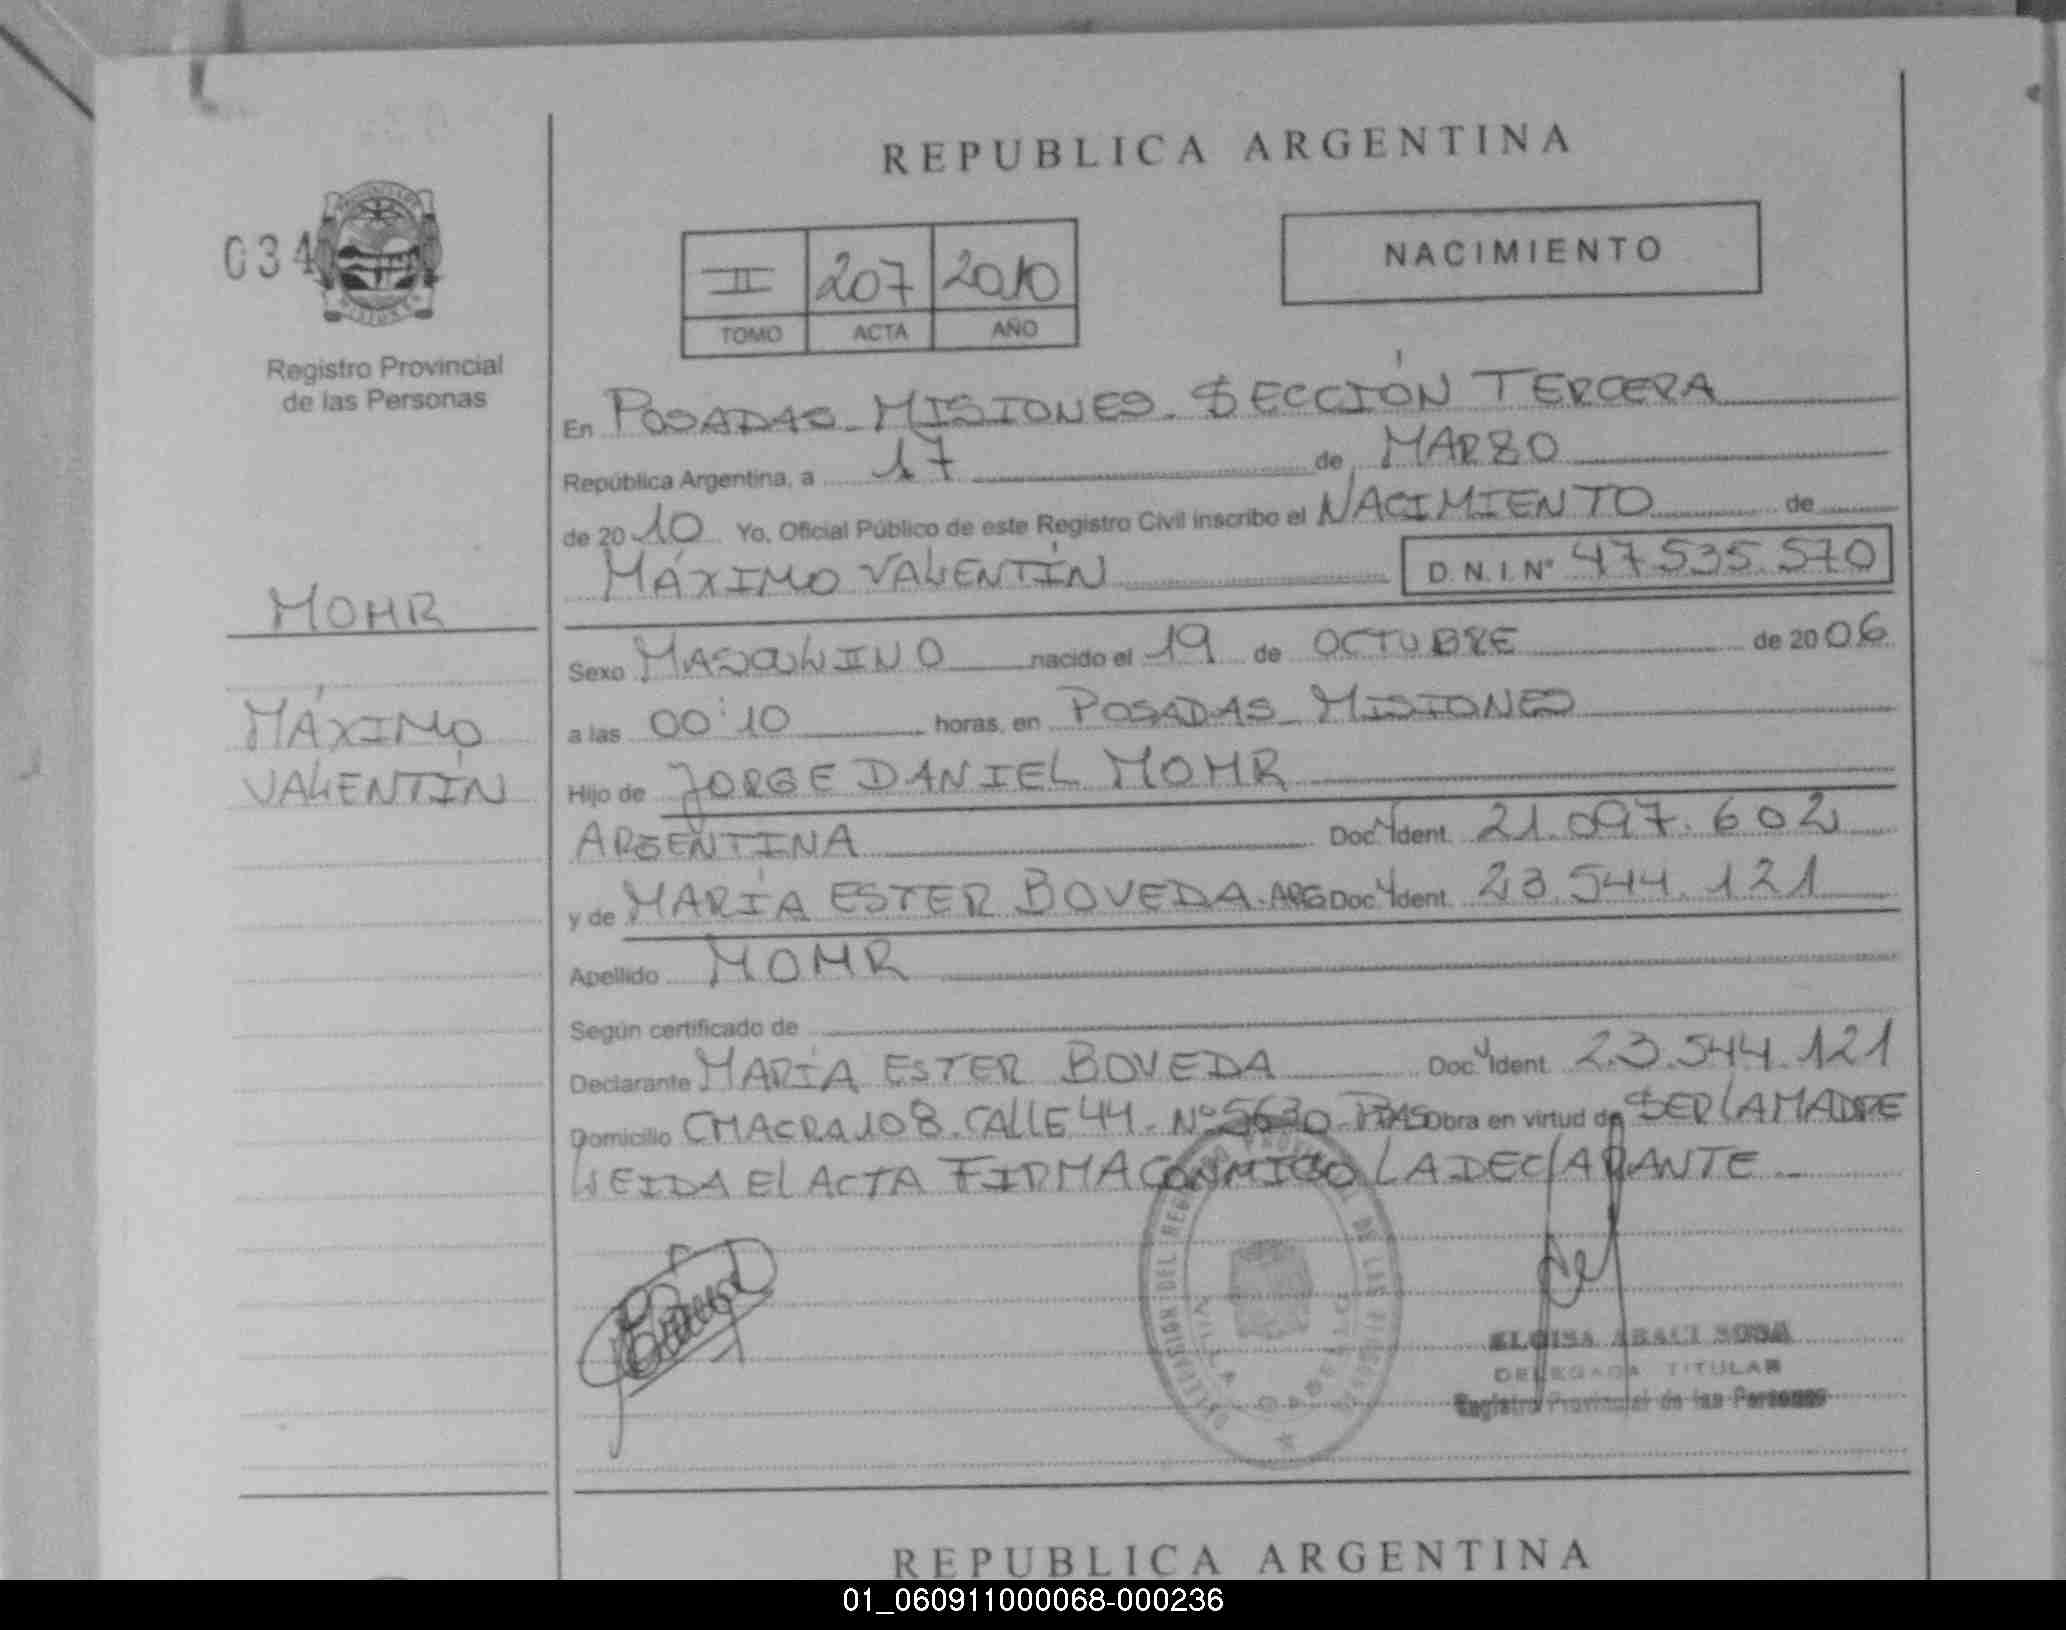 REPUBLICA ARGENTINA
034
NACIMIENTO
II 207 2010
TOMO ACTA AÑO
Registro Provincial
de las Personas
En POSADAS MISIONES. SECCIÓN TERCERA
República Argentina, a 17 de MARZO
de 2010 Yo, Oficial Público de este Registro Civil inscribo el NACIMIENTO de
MÁXIMO VALENTÍN D.N.I. Nº 47.535.570
MOHR
Sexo MASCULINO nacido el 19 de OCTUBRE de 2006
MÁXIMO
a las 00:10 horas, en POSADAS MISIONES
VALENTÍN
Hijo de JORGE DANIEL MOHR
ARGENTINA Doc. Ident. 21.097.602
y de MARÍA ESTER BOVEDA. ARG Doc. Ident. 23.544.121
Apellido MOHR
Según certificado de
Declarante MARÍA ESTER BOVEDA Doc. Ident. 23.544.121
Domicilio CHACRA 108. CALLE 44. Nº 5630. PDAS Obra en virtud de SER LA MADRE
LEIDA El ACTA FIRMA CONMIGO LA DEClARANTE
DELEGACION DEL REGISTRO PROVINCIAL DE LAS PERSONAS
VILLA CABELLO
ELOISA ABACI SOSA
DELEGADA TITULAR
Registro Provincial de las Personas
REPUBLICA ARGENTINA
01_060911000068-000236